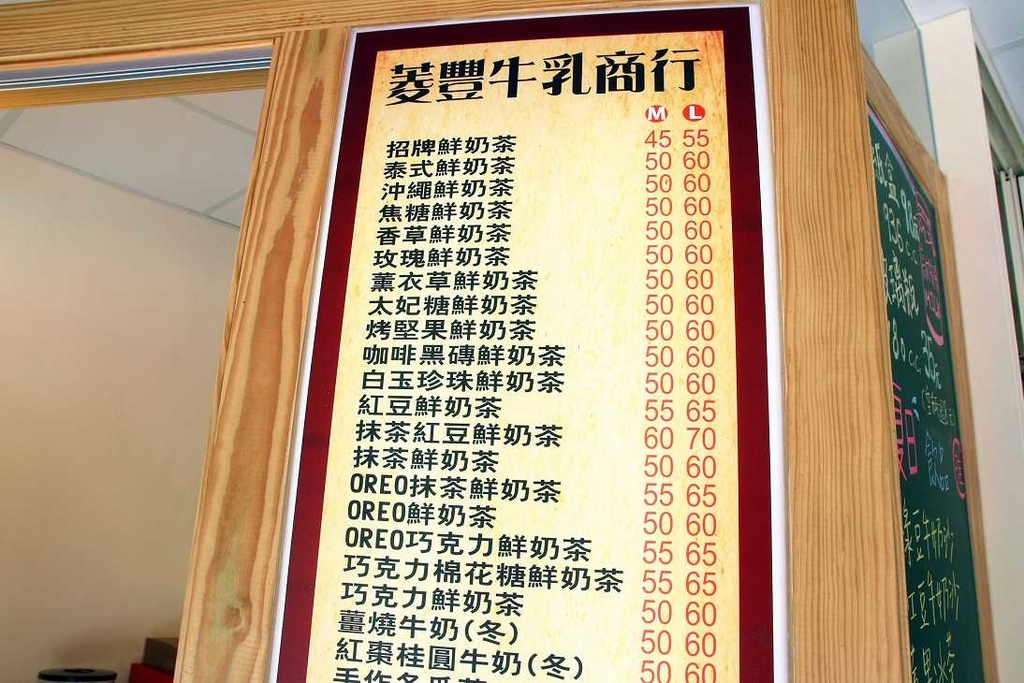 菱豐牛乳商行
M L
招牌鮮奶茶 45 55
泰式鮮奶茶 50 60
沖繩鮮奶茶 50 60
焦糖鮮奶茶 50 60
香草鮮奶茶 50 60
玫瑰鮮奶茶 50 60
薰衣草鮮奶茶 50 60
太妃糖鮮奶茶 50 60
烤堅果鮮奶茶 50 60
咖啡黑磚鮮奶茶 50 60
白玉珍珠鮮奶茶 50 60
紅豆鮮奶茶 55 65
抹茶紅豆鮮奶茶 60 70
抹茶鮮奶茶 50 60
OREO抹茶鮮奶茶 55 65
OREO鮮奶茶 50 60
OREO巧克力鮮奶茶 55 65
巧克力棉花糖鮮奶茶 55 65
巧克力鮮奶茶 50 60
薑燒牛奶(冬) 50 60
紅棗桂圓牛奶(冬) 50 60
手作冬瓜茶 50 60
夏日飲品
豆牛奶沙
紅豆牛奶沙